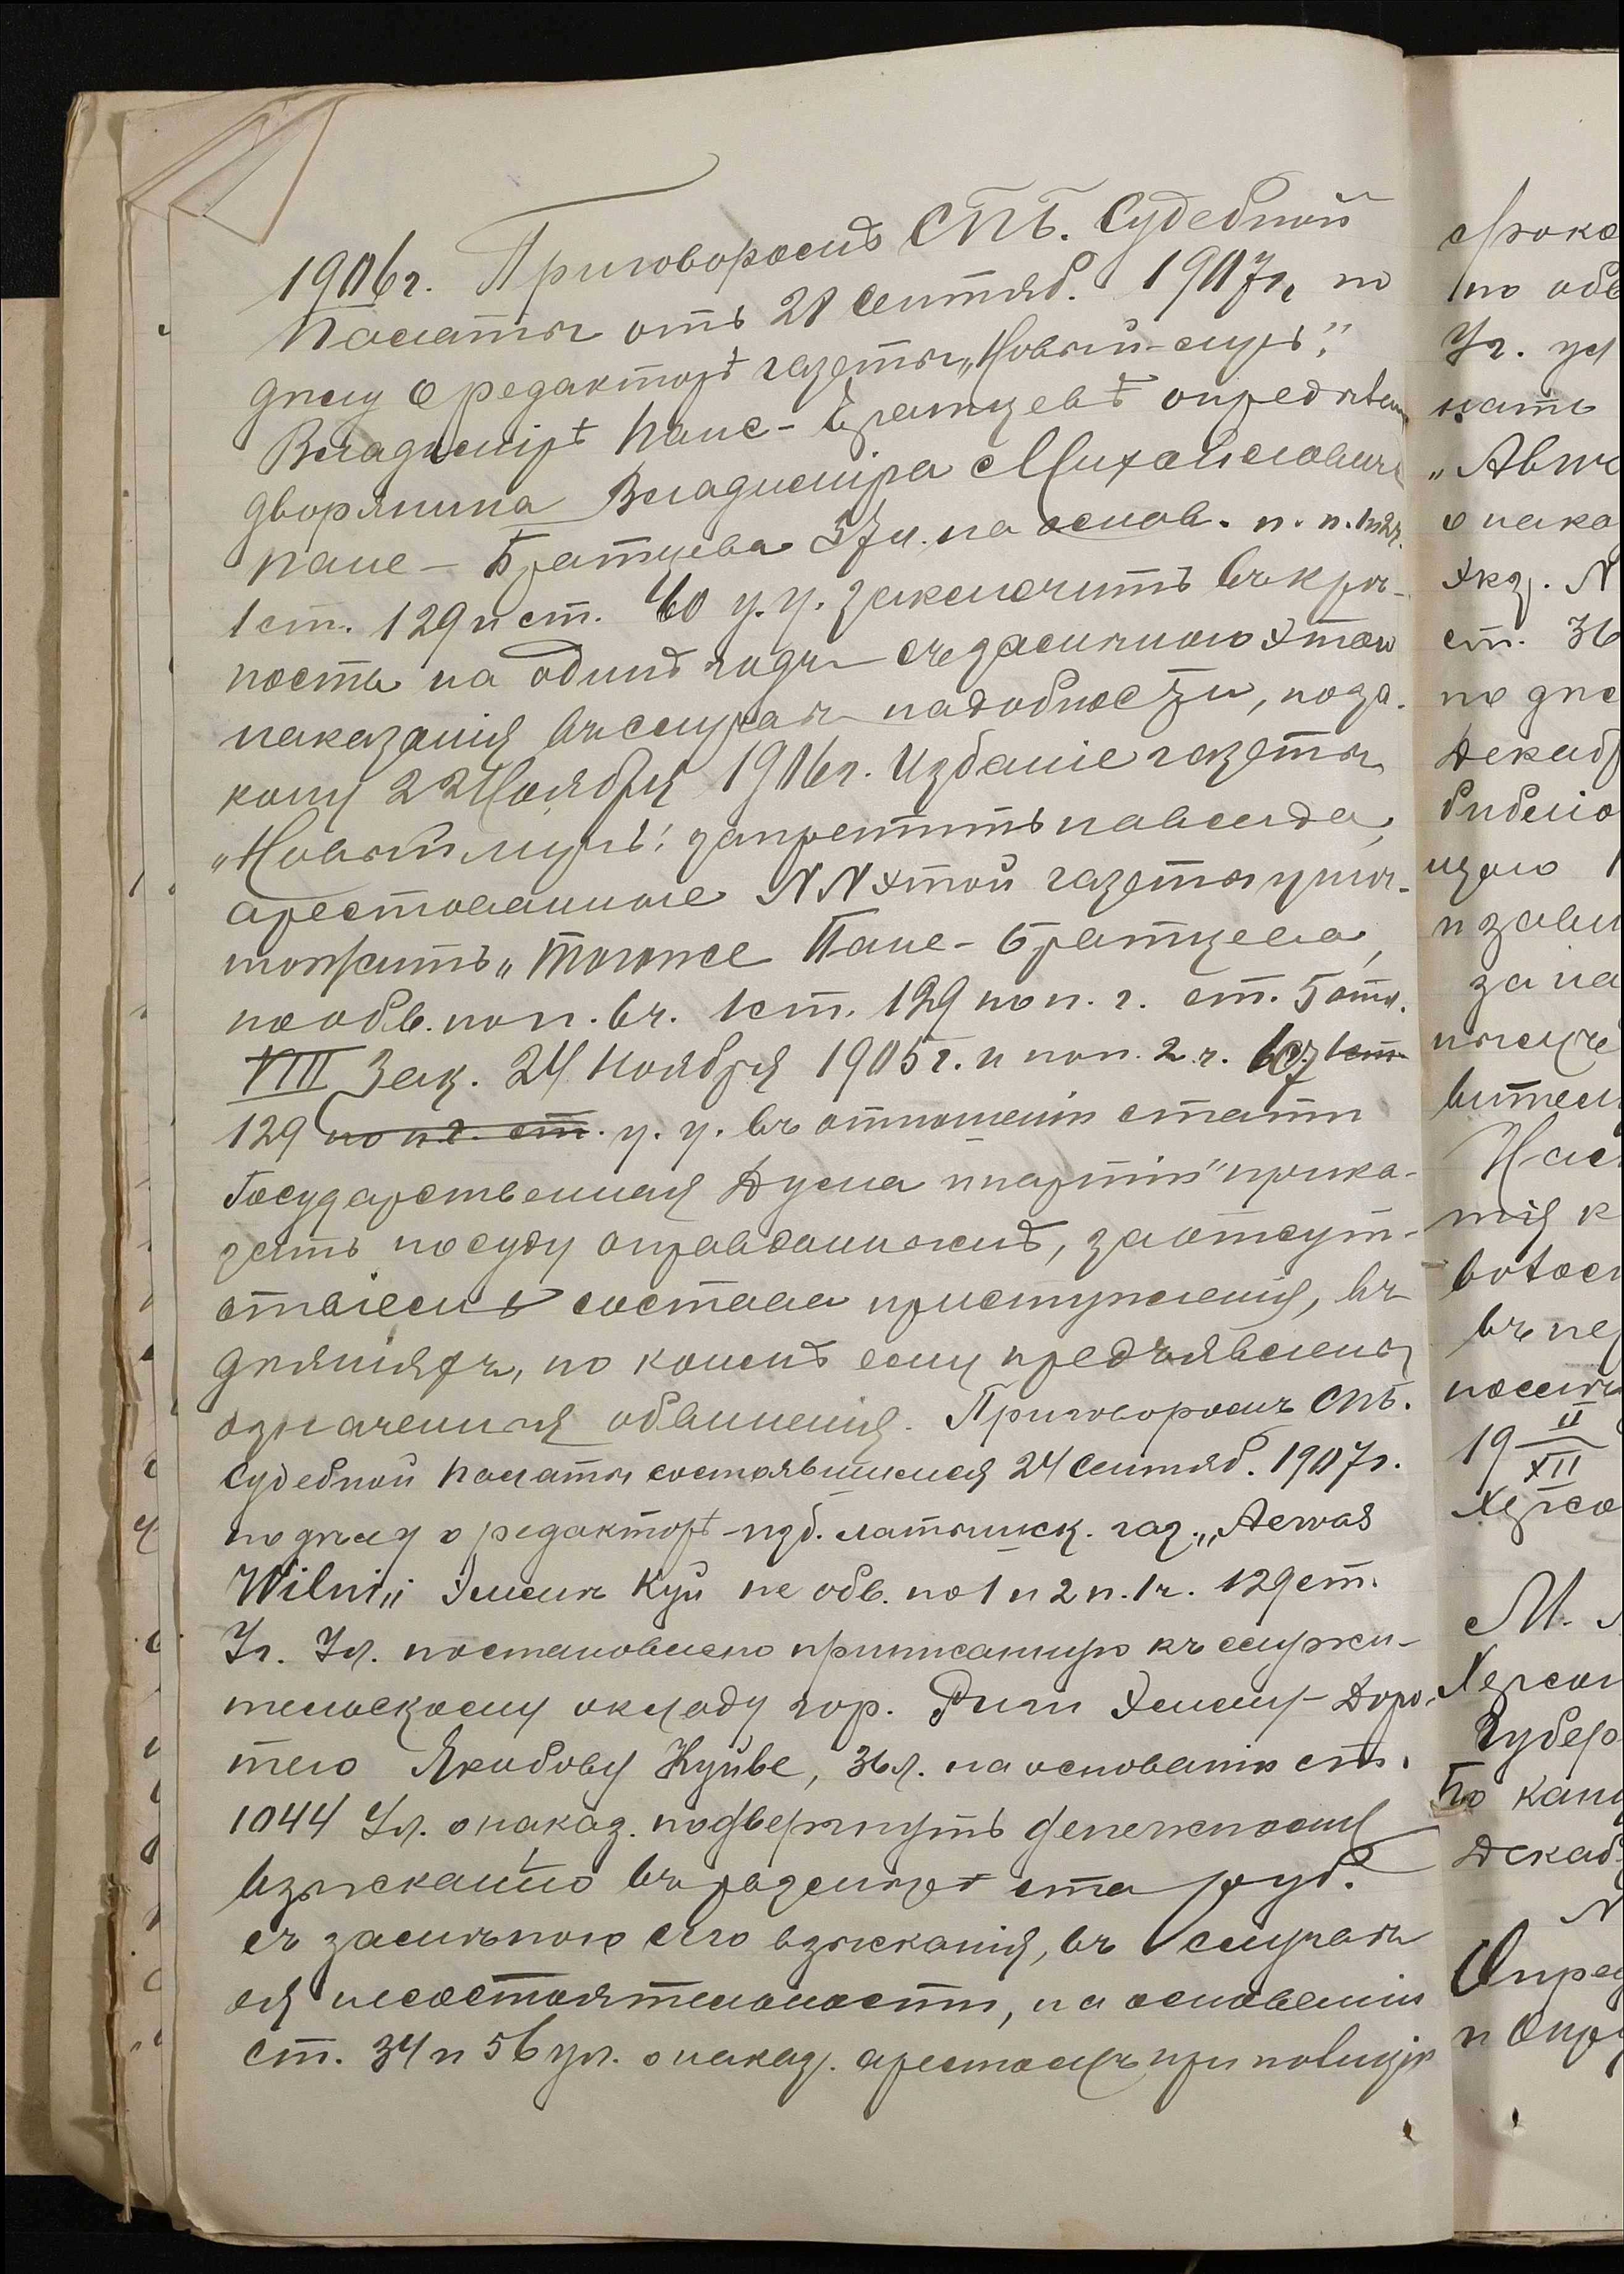 1906г. Приговоромъ СПБ. Судебной
Палаты отъ 20 Сентяб. 1907г. по
дѣлу о редакторѣ газеты „Новый-миръ",
Владимірѣ Пане-Братцевѣ опредѣлен
дворянина Владиміра Михайлович
Пане-Братцева 37л. на основ. п. п.
1 ст. 129 и ст. 60 у. у. заключить въ крѣ-
пость на одинъ годъ съ замѣною этого
наказанія въ случаѣ надобности, по за-
кону 22 Ноября 1906г. Изданіе газеты
„Новый міръ" запретить навсегда,
арестованные NN этой газеты унич-
тожить, Тогоже Пане-Братцева,
по обв. по п. 6 ч. 1 ст. 129 по п. г. ст. 5 отд.
VIII Зак. 24 Ноября 1905г. и по п. 2 ч. 1 ст.
129 по п. г. ст. у. у. въ отношеніи статьи
Государственная Дума и партіи" приз-
нать по суду оправданнымъ, за отсут-
ствіемъ состава преступленія, въ
дѣяніяхъ, по коимъ ему предъявлены
означенныя обвиненія. Приговоромъ СПБ.
Судебной Палаты состоявшимся 24 Сентяб. 1907г.
по дѣлу о редакторѣ-изд. латышск. газ. „
Wilni" Эмилѣ Куй не обв. по 1 и 2 п. 1 ч. 129 ст.
Уг. Ул. постановлено приписанную къ служи-
тельскому окладу гор. Риги Эмилію-Доро-
тею Якобову Куйве, 36л. на основаніи ст.
1044 Ул. о наказ. подвергнуть денежному
взысканію въ размѣрѣ ста руб.
съ замѣною сего взысканія, въ случаѣ
ея несостоятельности, на основаніи
ст. 34 и 56 ул. о наказ. арестомъ при полиціи
срока
по обв
Уг. ул
нать
о нака
Экз. N
ст. 36
по дѣл
Декабр
библіо
щаго
и зави
за на
Нас
тія к
въ пе
19 II
XII
Херсо
М.
Херсон
Губер
По кан
Декаб
N
Опред
и Опр